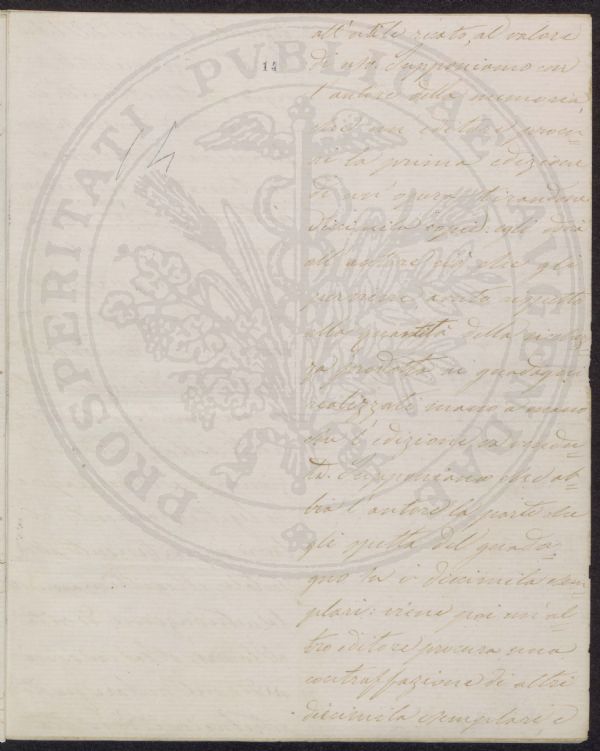 14
14
PROSPERITATI PVBLICAE AVGENDAE
all'utile recato, al valore
di uso. Supponiamo con
l'autore della memoria,
che un editore procu-
ri la prima edizione
di un'opera tirandone
diecimila copie. egli darà
all'autore ciò che gli
perviene avuto riguardo
alla quantità della ricchez-
za prodotta ai guadagni
realizzati mano a mano
che l'edizione va vendu-
ta. Supponiamo che ab-
bia l'autore la parte che
gli spetta del guada-
gno su i diecimila esem-
plari: viene poi un'al-
tro editore procura una
contraffazione di altri
diecimila esemplari, e